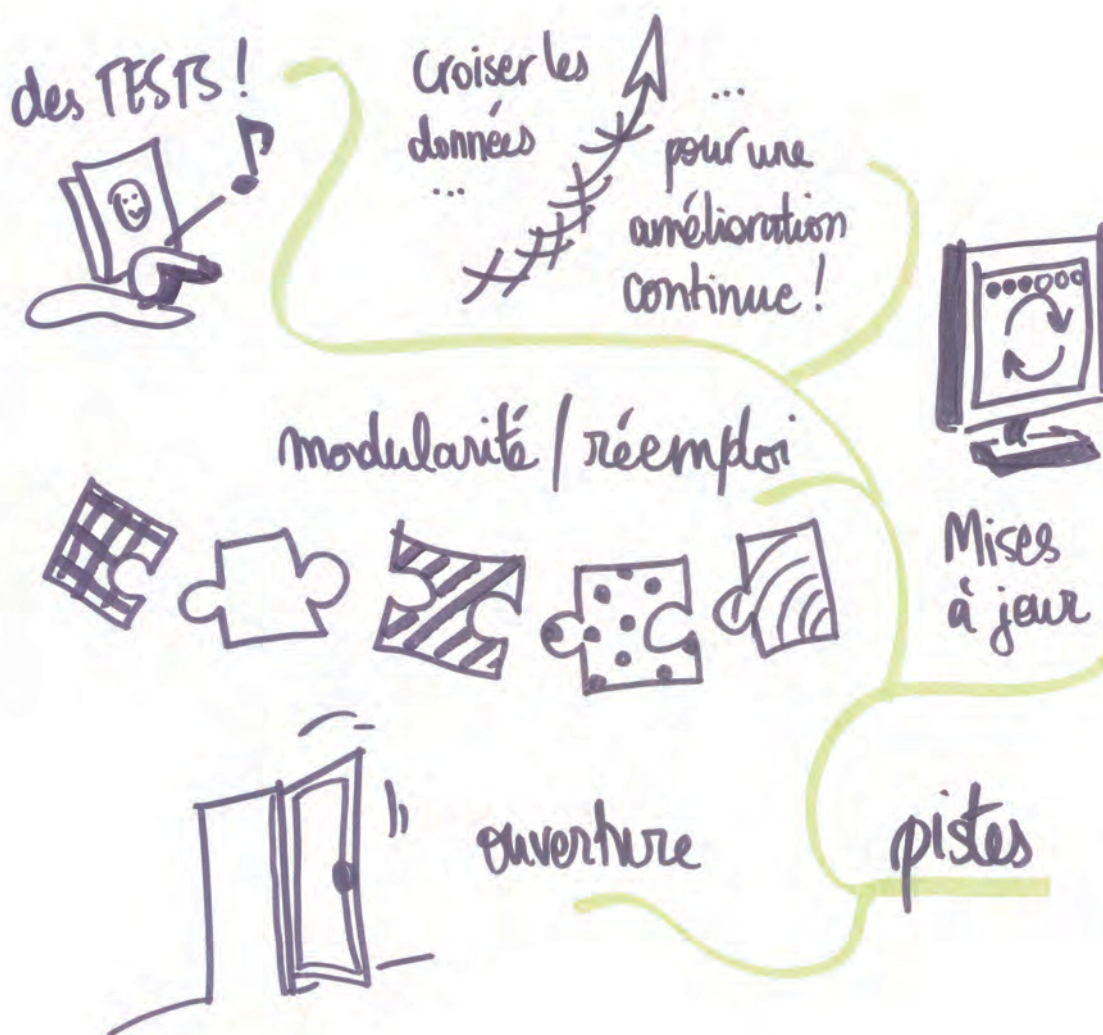 des TESTS !
croiser les
données
...
...
pour une
amélioration
continue !
modularité / réemploi
Mises
à jour
ouverture
pistes